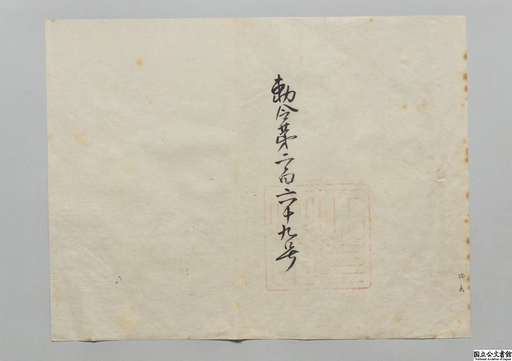 勅令第二百六十九号
国立公文書館
National Archives of Japan